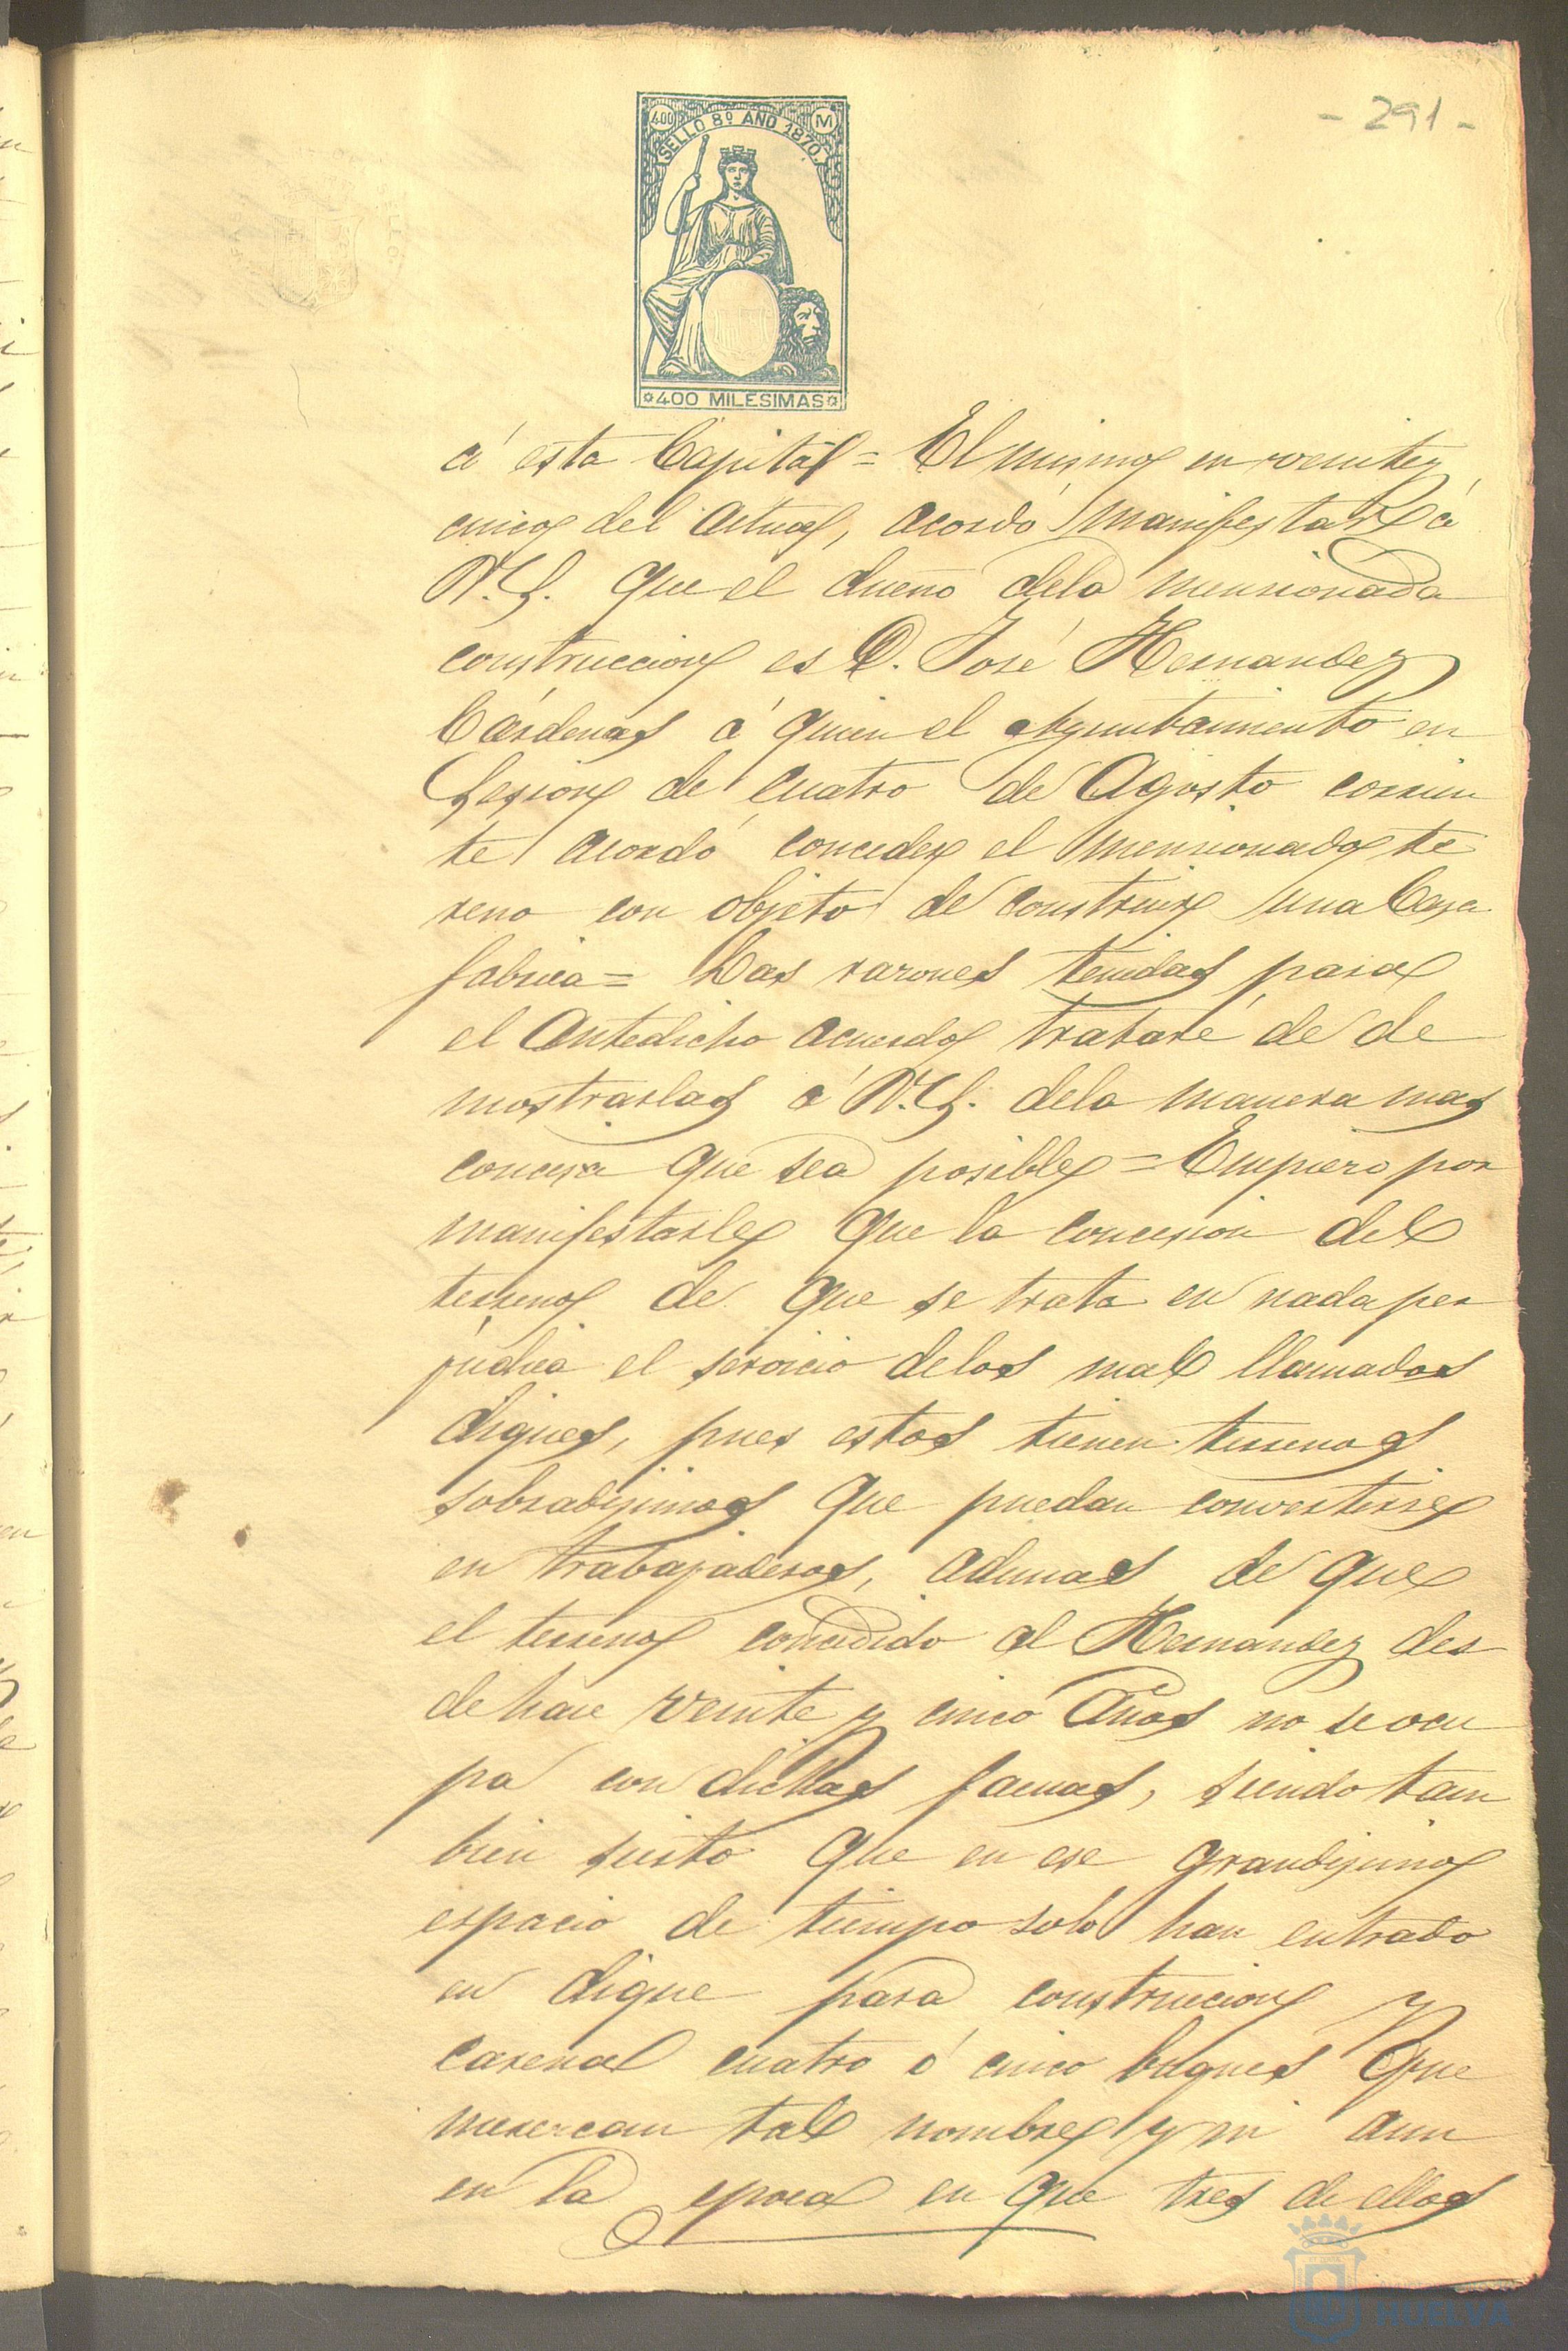 - 291 -
400 M
SELLO 8º AÑO 1870
400 MILESIMAS
á esta Capital = El mismo en veinte y
cinco del actual, acordó manifestar á
V.S. que el dueño dela mensionada
construccion es D. José Hernandez
Cárdenas á quien el Ayuntamiento en
Sesion de cuatro de Agosto corrien
te acordó conceder el mensionado te
reno con objeto de construir una Casa
fabrica = Las razones tenidas para
el antedicho acuerdo trataré de de
mostrarlas á V.S. dela manera mas
concisa que sea posible = Empiezo por
manifestarle que la concesion del
terreno de que se trata en nada per
judica el servicio delos mal llamados
diques, pues estos tienen terrenos
sobradisimos que puedan convertirse
en trabajaderos, ademas de que
el terreno concedido al Hernandez des
de hace veinte y cinco años no se ocu
pa con dichas faenas, siendo tam
bien sierto que en ese grandisimo
espacio de tiempo solo han entrado
en dique para construccion y
carena cuatro ó cinco buques que
merezcan tal nombre y ni aun
en la epoca en que tres de ellos
HUELVA